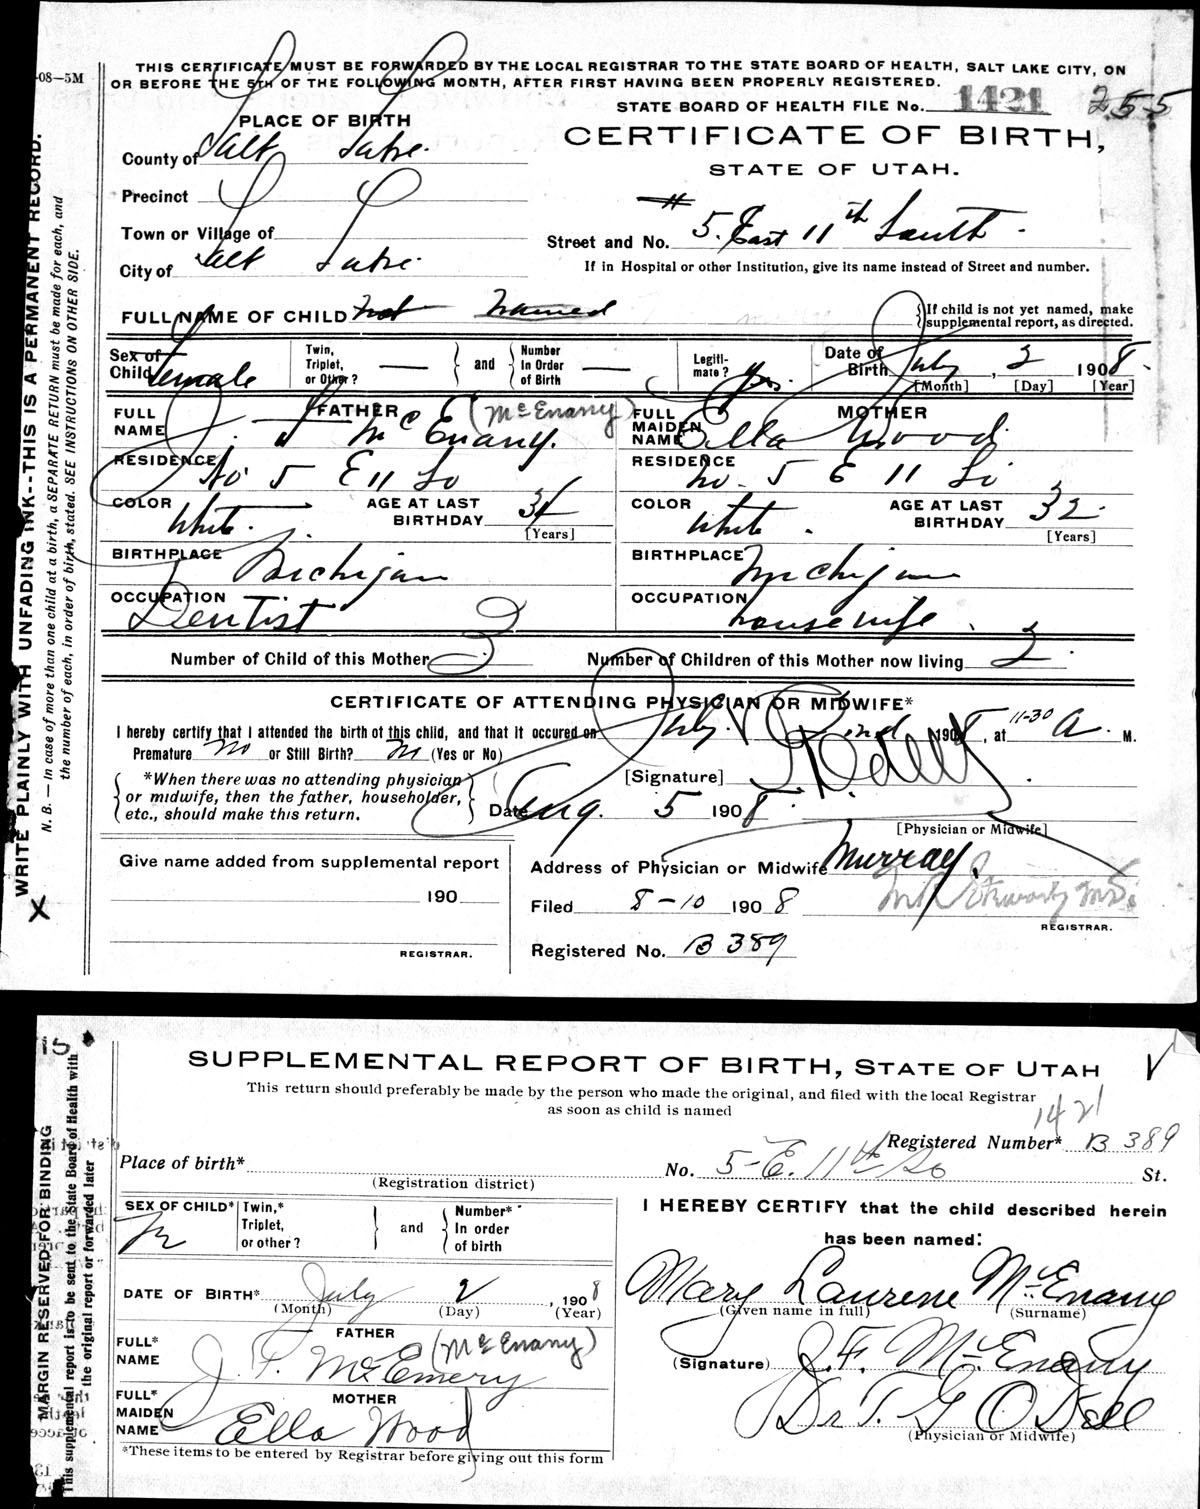 -08—5M
THIS CERTIFICATE MUST BE FORWARDED BY THE LOCAL REGISTRAR TO THE STATE BOARD OF HEALTH, SALT LAKE CITY, ON
OR BEFORE THE 5TH OF THE FOLLOWING MONTH, AFTER FIRST HAVING BEEN PROPERLY REGISTERED.
STATE BOARD OF HEALTH FILE No. 1421 255
PLACE OF BIRTH
CERTIFICATE OF BIRTH,
STATE OF UTAH.
County of Salt Lake.
Precinct
Town or Village of
City of Salt Lake.
Street and No. # 5. East 11th South.
If in Hospital or other Institution, give its name instead of Street and number.
FULL NAME OF CHILD Not Named
If child is not yet named, make
supplemental report, as directed.
Sex of Child Female
Twin, Triplet, or Other? — and Number In Order of Birth —
Legiti-mate? Yes.
Date of Birth July, 2 1908.
[Month] [Day] [Year]
FATHER
FULL NAME J. F McEnany. (McEnany)
RESIDENCE No 5 E 11 So
COLOR White. AGE AT LAST BIRTHDAY 34
[Years]
BIRTHPLACE Michigan
OCCUPATION Dentist
MOTHER
FULL MAIDEN NAME Ella Wood
RESIDENCE No. 5 E 11 So
COLOR White. AGE AT LAST BIRTHDAY 32
[Years]
BIRTHPLACE Michigan
OCCUPATION housewife.
Number of Child of this Mother 3 Number of Children of this Mother now living 2.
CERTIFICATE OF ATTENDING PHYSICIAN OR MIDWIFE*
I hereby certify that I attended the birth of this child, and that it occured on July 2nd 1908, at 11-30 A. M.
Premature No or Still Birth? No (Yes or No)
*When there was no attending physician
or midwife, then the father, householder,
etc., should make this return.
[Signature]
Date Aug. 5 1908.
[Physician or Midwife]
Give name added from supplemental report
190
REGISTRAR.
Address of Physician or Midwife Murray.
Filed 8-10 1908
REGISTRAR.
Registered No. B 389
WRITE PLAINLY WITH UNFADING INK--THIS IS A PERMANENT RECORD.
N. B. — In case of more than one child at a birth, a SEPARATE RETURN must be made for each, and
the number of each, in order of birth, stated. SEE INSTRUCTIONS ON OTHER SIDE.
X
15
SUPPLEMENTAL REPORT OF BIRTH, STATE OF UTAH
This return should preferably be made by the person who made the original, and filed with the local Registrar
as soon as child is named
1421
Registered Number* B 389
Place of birth* No. 5-E. 11th So St.
(Registration district)
SEX OF CHILD*
Twin,* Triplet, or other? and Number* In order of birth
DATE OF BIRTH* July 2, 1908
(Month) (Day) (Year)
FATHER
FULL* NAME J. F. McEmery (McEnany)
MOTHER
FULL* MAIDEN NAME Ella Wood
*These items to be entered by Registrar before giving out this form
I HEREBY CERTIFY that the child described herein
has been named:
Mary Laurene McEnany
(Given name in full) (Surname)
(Signature) J. F. McEnany
Dr T. G O'Dell
(Physician or Midwife)
MARGIN RESERVED FOR BINDING
This supplemental report is to be sent to the State Board of Health with
the original report or forwarded later